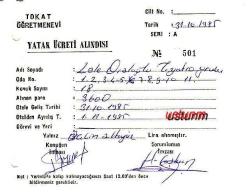 TOKAT
ÖĞRETMENEVİ
Cilt No. :
Tarih : 31.10.1985
SERİ : A
YATAK ÜCRETİ ALINDISI
№ 501
Adı Soyadı :
Oda No. : 1,2,3,4,5,6,7,8,9,10,11
Konuk Sayısı : 18
Alınan para : 3600
Otele Geliş Tarihi : 31.10.1985
Otelden Ayrılış T. : 1.11.1985
Görevi ve Yeri :
ustunn
Yalnız Lira alınmıştır.
Konuğun Sorumlunun
İmzası İmzası
Not : Yatakta kalıp kalınmayacağının Saat 12.00'den önce
bildirilmesi gereklidir.